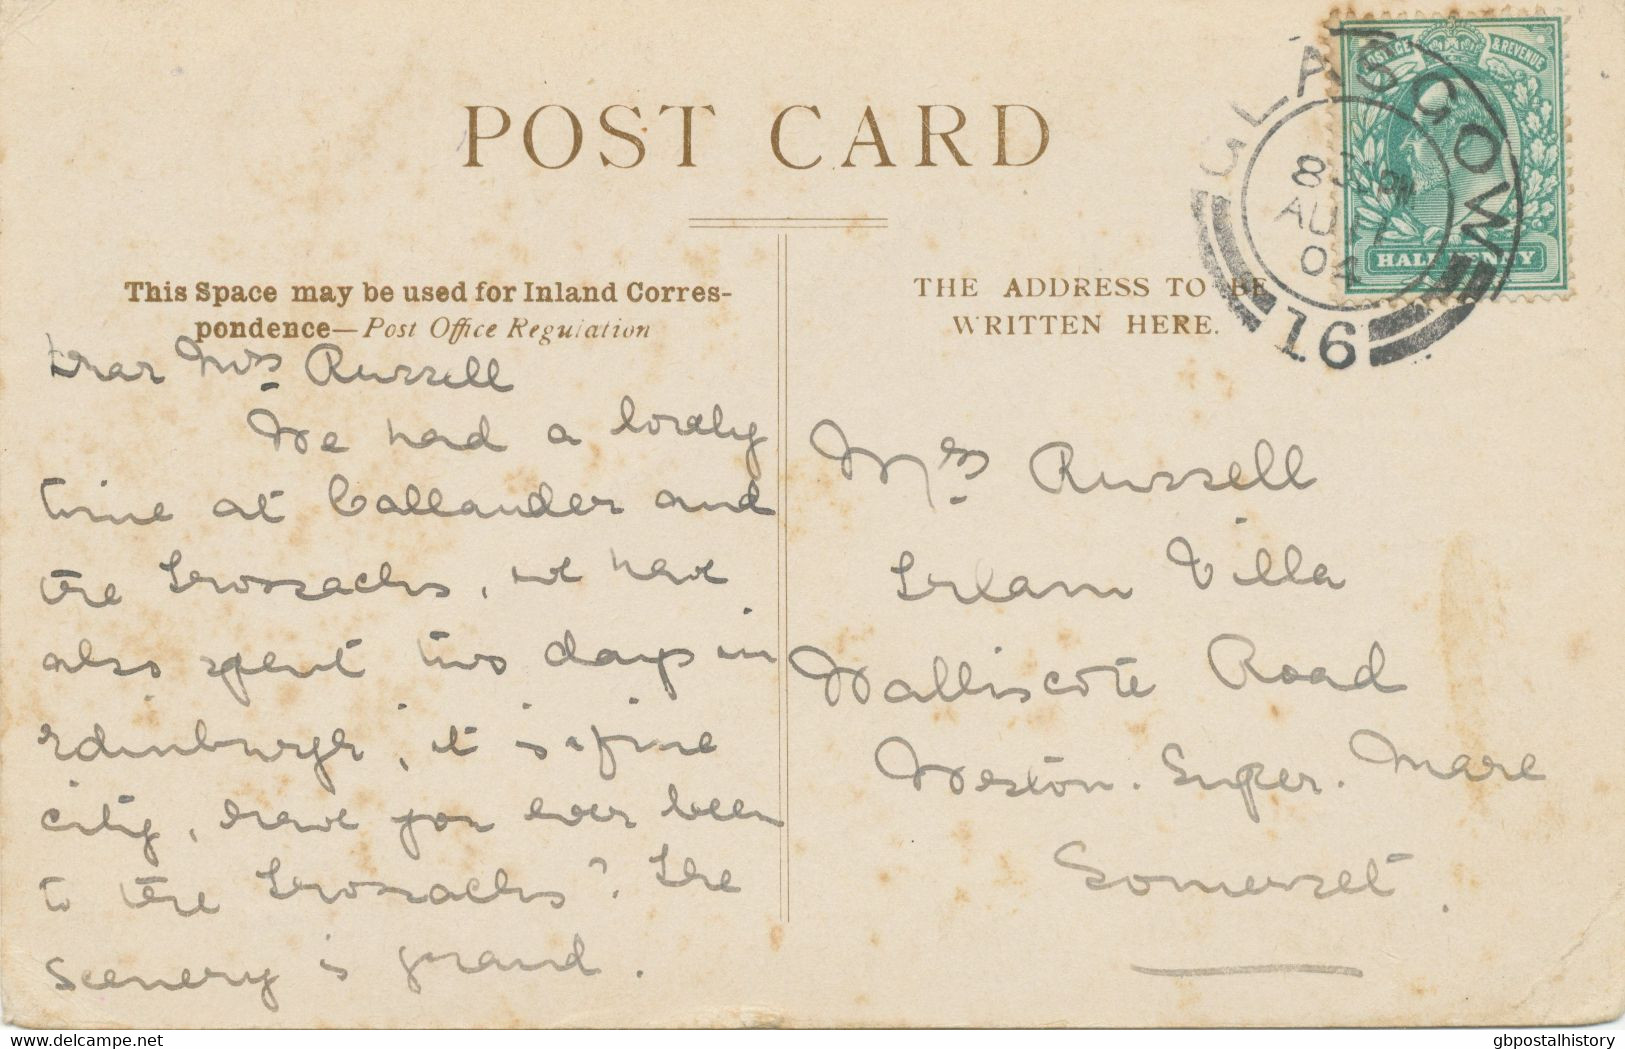 POST CARD
This Space may be used for Inland Corres-
pondence—Post Office Regulation
THE ADDRESS TO BE
WRITTEN HERE.
POSTAGE & REVENUE
HALF PENNY
GLASGOW
AU 1
04
16
Dear Mrs Russell
We had a lovely
time at Callander and
the Trossachs, we have
also spent two days in
Edinburgh, it is a fine
city, have you ever been
to the Trossachs? The
scenery is grand.
Mrs Russell
Villa
Walliscote Road
Weston. Super. Mare
Somerset.
delcampe.net
gbpostalhistory